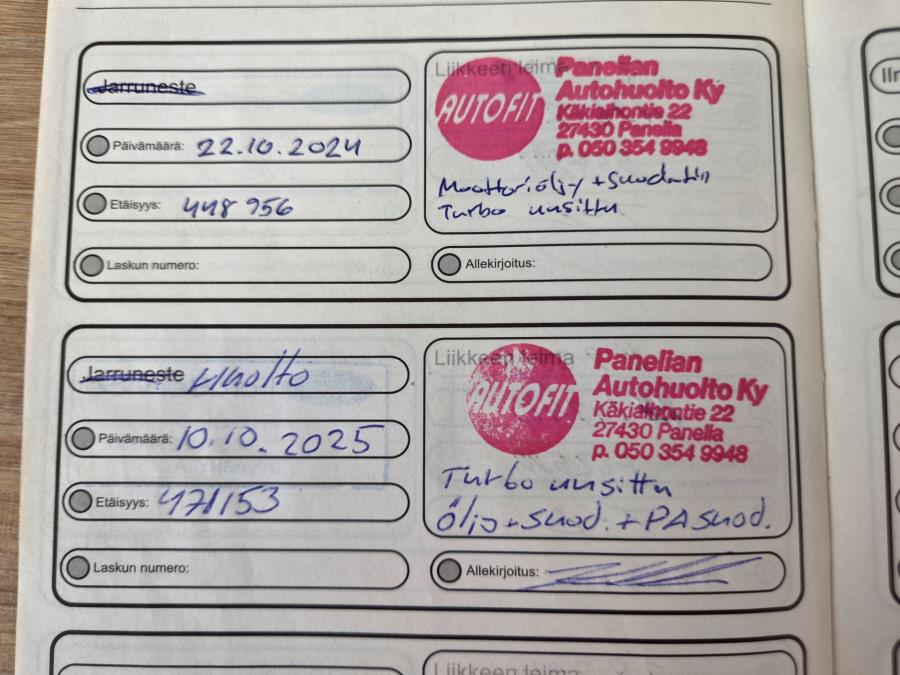 Jarruneste
Päivämäärä: 22.10.2024
Etäisyys: 448 956
Laskun numero:
Liikkeen leima
AUTOFIT
Panelian
Autohuolto Ky
Käkialhontie 22
27430 Panelia
p. 050 354 9948
Moottoriöljy + suodatin
Turbo uusittu
Allekirjoitus:
Jarruneste Huolto
Päivämäärä: 10.10.2025
Etäisyys: 471153
Laskun numero:
Liikkeen leima
AUTOFIT
Panelian
Autohuolto Ky
Käkialhontie 22
27430 Panelia
p. 050 354 9948
Turbo uusittu
Öljy + suod. + PA suod.
Allekirjoitus:
Liikkeen leima